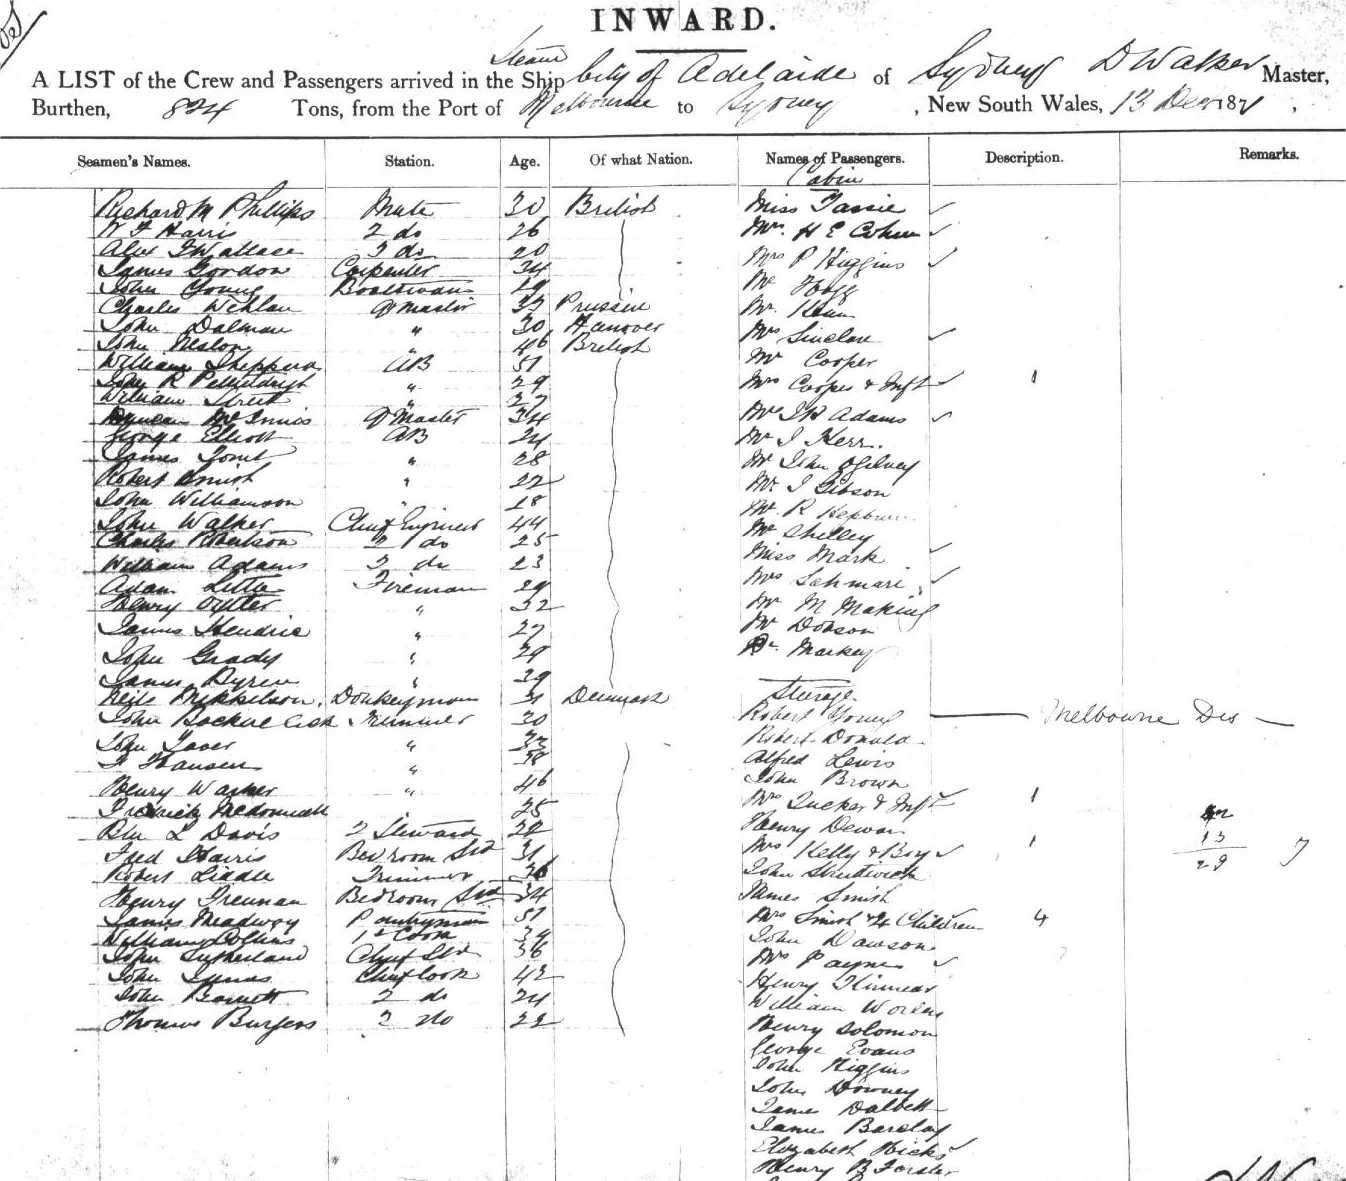 INWARD.
Steam
A LIST of the Crew and Passengers arrived in the Ship City of Adelaide of Sydney D Walker Master,
Burthen, 824 Tons, from the Port of Melbourne to Sydney , New South Wales, 13 Dec 1871 ,
Seamen's Names. Station. Age. Of what Nation. Names of Passengers. Description. Remarks.
Cabin
Richard M Phillips Mate 30 British Miss Tassie
W F Harris 2 do 26 Mrs H E Cohen
Alex Wallace 3 do 20 Mrs P Higgins
James Gordon Carpenter 34 Mr Hogg
John Young Boatswain 29 Mr Keen
Charles Wehlan Q Master 32 Prussia Mrs Sinclair
John Dalman " 30 Hanover Mr Cooper
John Neslon " 46 British Mrs Cooper & Inft 1
William Sheppard AB 51 Mr J R Adams
John R " 29 Mr J Kerr.
William Street " 27 Mr John Ogilvey
Duncan McInnis Q Master 34 Mr J Gibson
George Elliott AB 24 Mr R Hepburn
James " 28 Mr Shelley
Robert Smith " 22 Miss Mark
John Williamson " 18 Mrs
John Walker Chief Engineer 44 Mr M Making
Charles Robertson 2 do 25 Mr Dobson
William Adams 3 do 23 Dr. Markey
Adam Little Fireman 29 Steerage
Henry Oyster " 32 Robert Young Melbourne Des
James Hendrie " 27 Robert Donald
John Grady " 29 Alfred Lewis
James Byren " 29 John Brown
Neils Mikkelson Donkeyman 31 Denmark Mrs Tucker & Inft 1
John Trimmer 20 Henry Dewar
John " 33 Mrs Kelly & Boy 1
F Hansen " 38 John
Henry Warner " 46 James Smith
Fredrick McDonnall 25 Mrs Smith & 4 Children 4
L Davis 2 Steward 22 John Dawson
Fred Harris Bedroom Std 31 Mrs Payne
Robert Liddle Trimmer 36 Henry Kinnear
Henry Freeman Bedroom Std 34 William
James Meadway Pantryman 51 Henry Solomon
William Collins 1st Cook 39 George Evans
John Sutherland Chief Std 36 John Higgins
John Chief Cook 42 John Downey
John Barnett 2 do 24 James Dalbett
Thomas Burgess 3 do 22 James Barclay
Elizabeth Hicks
Henry B Forster
13
29
7